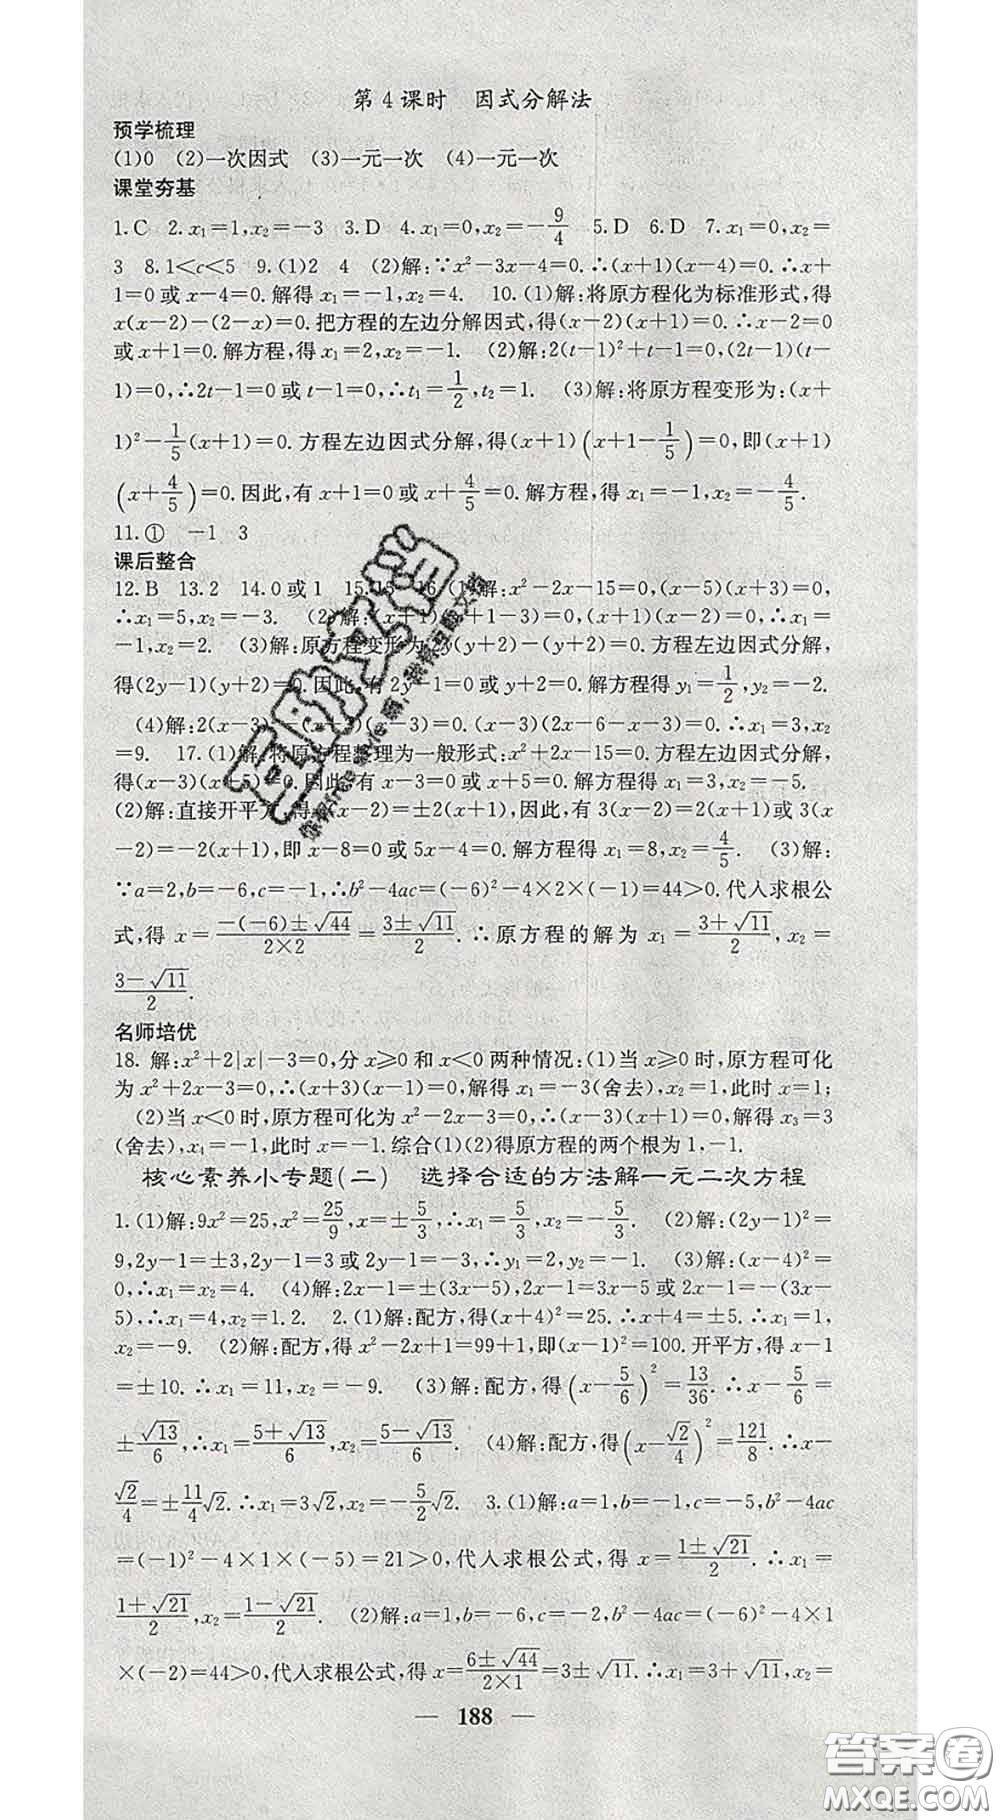 第4课时 因式分解法
预学梳理
(1)0 (2)一次因式 (3)一元一次 (4)一元一次
课堂夯基
1.C 2.x₁=1,x₂=-3 3.D 4.x₁=0,x₂=-9/4 5.D 6.D 7.x₁=0,x₂=
3 8.1<c<5 9.(1)2 4 (2)解:∵x²-3x-4=0.∴(x+1)(x-4)=0.∴x+
1=0或x-4=0.解得x₁=-1,x₂=4. 10.(1)解:将原方程化为标准形式,得
x(x-2)-(2-x)=0.把方程的左边分解因式,得(x-2)(x+1)=0.∴x-2=0
或x+1=0.解方程,得x₁=2,x₂=-1. (2)解:2(t-1)²+t-1=0,(2t-1)(t-
1)=0,∴2t-1=0或t-1=0.∴t₁=1/2,t₂=1. (3)解:将原方程变形为:(x+
1)²-1/5(x+1)=0.方程左边因式分解,得(x+1)(x+1-1/5)=0,即(x+1)
(x+4/5)=0.因此,有x+1=0或x+4/5=0.解方程,得x₁=-1,x₂=-4/5.
11.① -1 3
课后整合
12.B 13.2 14.0或1 15. 16.(1)解:x²-2x-15=0,(x-5)(x+3)=0,
∴x₁=5,x₂=-3. (2)解:(x+1)=0,(x+1)(x-2)=0.∴x₁=
-1,x₂=2. (3)解:原方程变形为2y(y+2)-(y+2)=0.方程左边因式分解,
得(2y-1)(y+2)=0.因此,有2y-1=0或y+2=0.解方程得y₁=1/2,y₂=-2.
(4)解:2(x-3)(x-3)=0.(x-3)(2x-6-x-3)=0.∴x₁=3,x₂
=9. 17.(1)解:将原方程整理为一般形式:x²+2x-15=0.方程左边因式分解,
得(x-3)(x+5)=0.因此,有x-3=0或x+5=0.解方程得x₁=3,x₂=-5.
(2)解:直接开平方,得3(x-2)=±2(x+1),因此,有3(x-2)=2(x+1)或3(x
-2)=-2(x+1),即x-8=0或5x-4=0.解方程得x₁=8,x₂=4/5. (3)解:
∵a=2,b=-6,c=-1,∴b²-4ac=(-6)²-4×2×(-1)=44>0.代入求根公
式,得x=(-(-6)±√44)/(2×2)=(3±√11)/2.∴原方程的解为x₁=(3+√11)/2,x₂=
(3-√11)/2.
名师培优
18.解:x²+2|x|-3=0,分x≥0和x<0两种情况:(1)当x≥0时,原方程可化
为x²+2x-3=0,∴(x+3)(x-1)=0,解得x₁=-3(舍去),x₂=1,此时x=1;
(2)当x<0时,原方程可化为x²-2x-3=0,∴(x-3)(x+1)=0,解得x₃=3
(舍去),x₄=-1,此时x=-1.综合(1)(2)得原方程的两个根为1,-1.
核心素养小专题(二) 选择合适的方法解一元二次方程
1.(1)解:9x²=25,x²=25/9,x=±5/3,∴x₁=5/3,x₂=-5/3. (2)解:(2y-1)²=
9,2y-1=±3,2y-1=3或2y-1=-3,∴y₁=2,y₂=-1. (3)解:(x-4)²=
0,∴x₁=x₂=4. (4)解:2x-1=±(3x-5),2x-1=3x-5或2x-1=-(3x-
5).∴x₁=4,x₂=1.2. 2.(1)解:配方,得(x+4)²=25.∴x+4=±5.∴x₁=1,
x₂=-9. (2)解:配方,得x²-2x+1=99+1,即(x-1)²=100.开平方,得x-1
=±10.∴x₁=11,x₂=-9. (3)解:配方,得(x-5/6)²=13/36.∴x-5/6=
±√13/6,∴x₁=(5+√13)/6,x₂=(5-√13)/6. (4)解:配方,得(x-√2/4)²=121/8.∴x-
√2/4=±11/4√2.∴x₁=3√2,x₂=-5/2√2. 3.(1)解:a=1,b=-1,c=-5,b²-4ac
=(-1)²-4×1×(-5)=21>0,代入求根公式,得x=(1±√21)/2.∴x₁=
(1+√21)/2,x₂=(1-√21)/2. (2)解:a=1,b=-6,c=-2,b²-4ac=(-6)²-4×1
×(-2)=44>0,代入求根公式,得x=(6±√44)/(2×1)=3±√11.∴x₁=3+√11,x₂=
— 188 —
答案圈
MXQE.COM